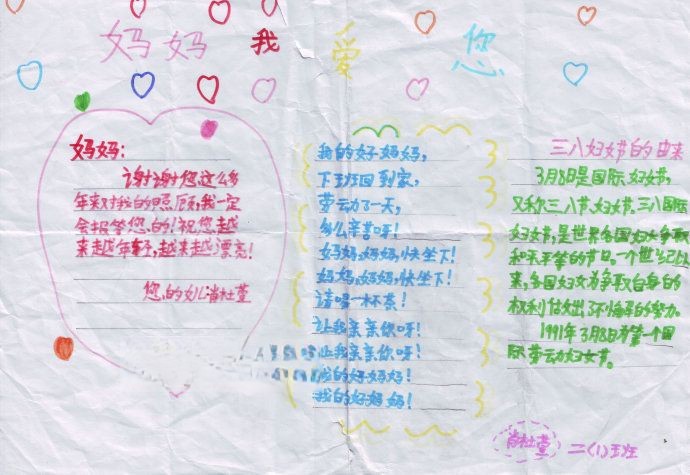 妈妈我爱您
妈妈:
谢谢您这么多
年来对我的照顾,我一定
会报答您的!祝您越
来越年轻,越来越漂亮!
您的女儿肖杜萱
我的好妈妈,
下班回到家,
劳动了一天,
多么辛苦呀!
妈妈,妈妈,快坐下!
妈妈,妈妈,快坐下!
请喝一杯茶!
让我亲亲你呀!
让我亲亲你呀!
我的好妈妈!
我的好妈妈!
三八妇女节的由来
3月8日是国际妇女节,
又称三八节、妇女节、三八国际
妇女节,是世界各国妇女争取
和平平等的节日。一个世纪以
来,各国妇女为争取自身的
权利做出了不懈的努力。
1991年3月8日为第一个国
际劳动妇女节。
肖杜萱 二(1)班